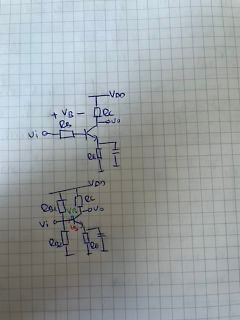 VDD
+ VB -
RC
RB
Vo
Vi
RE
VDD
RC
Vo
Vi
RE